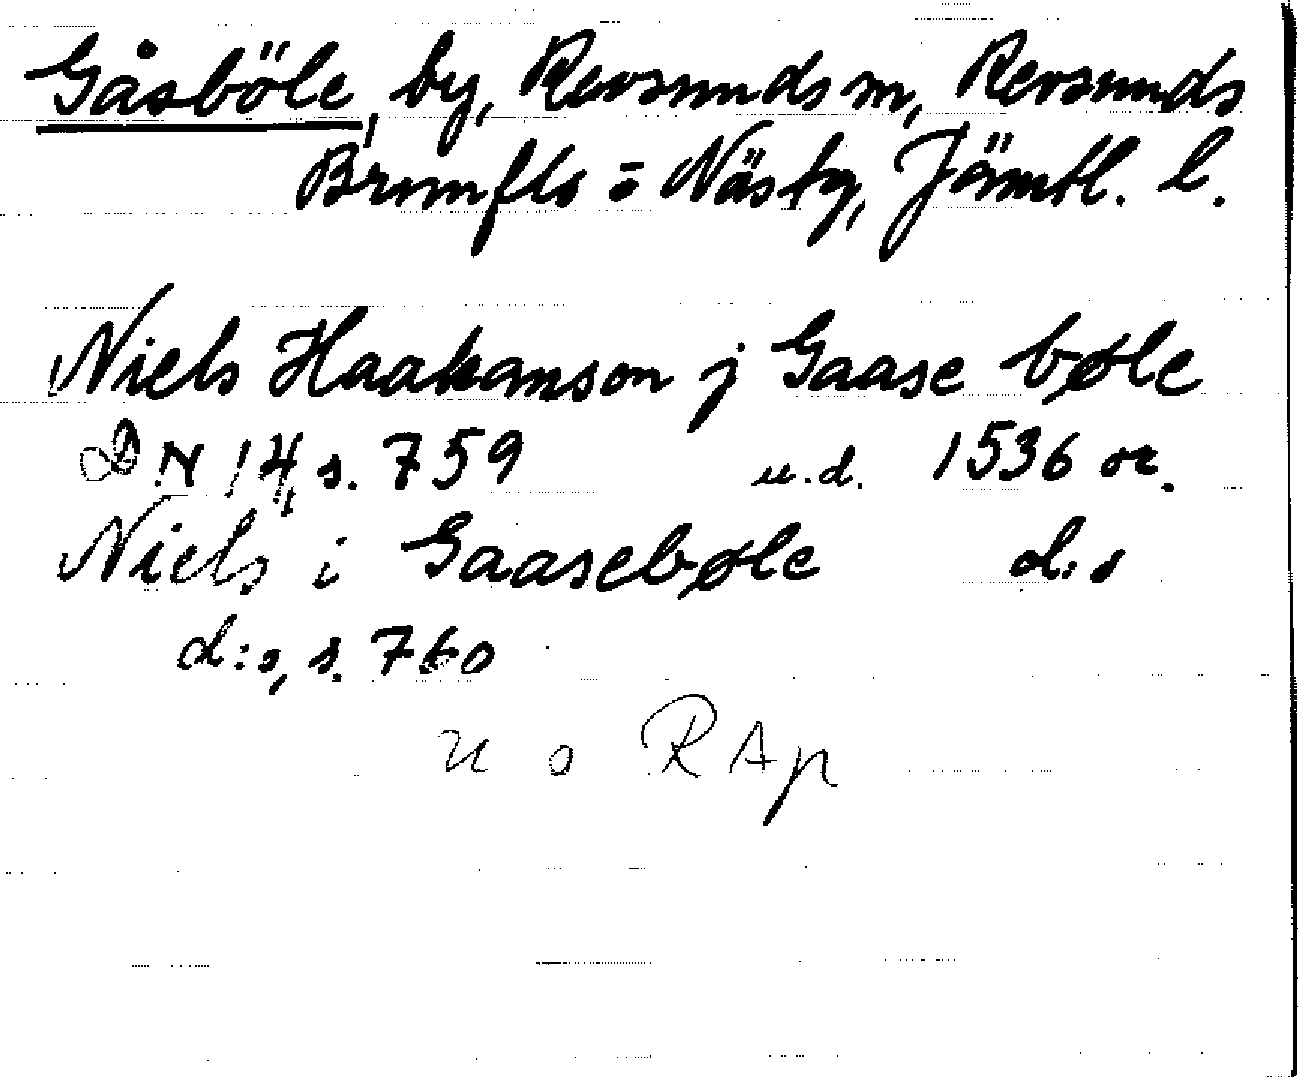 Gåsböle, by, Revsunds sn, Revsunds
Brunflo = Näs tg, Jämtl. l.
Niels Haakanson j Gaase bøle
DN 14, s. 759 u.d. 1536 or.
Niels i Gaasebøle d:o
d:o, s. 760
u o RAp